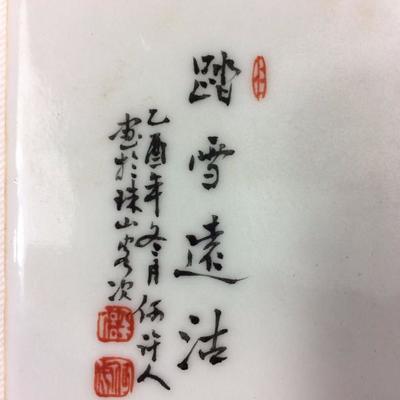 踏雪遠沽
乙酉年冬月何许人
画於珠山客次